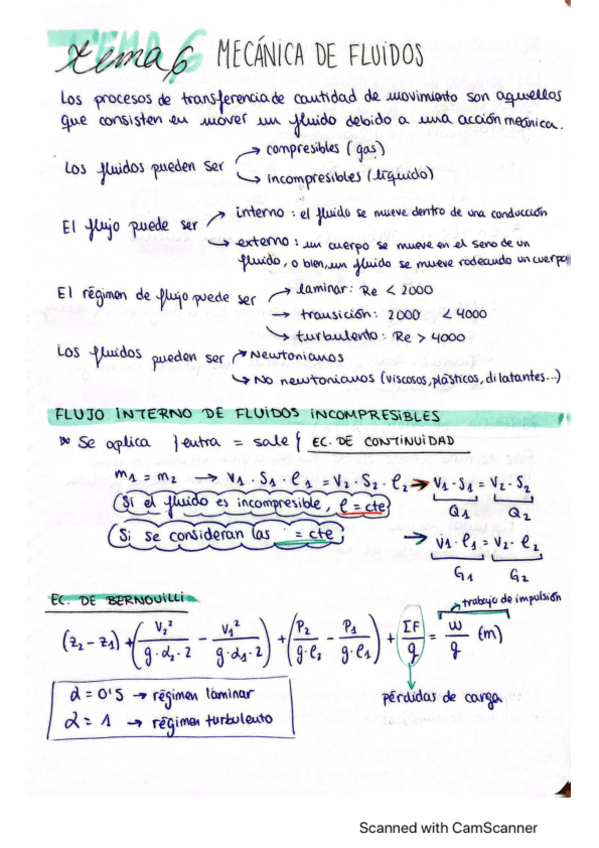 TEMA 6
tema 6 MECÁNICA DE FLUIDOS
Los procesos de transferencia de cantidad de movimiento son aquellos
que consisten en mover un fluido debido a una acción mecánica.
Los fluidos pueden ser → compresibles (gas)
→ incompresibles (líquido)
El flujo puede ser → interno: el fluido se mueve dentro de una conducción
→ externo: un cuerpo se mueve en el seno de un
fluido, o bien, un fluido se mueve rodeando un cuerpo
El régimen de flujo puede ser → laminar: Re < 2000
→ transición: 2000 < 4000
→ turbulento: Re > 4000
Los fluidos pueden ser → Newtonianos
→ No newtonianos (viscosos, plásticos, dilatantes...)
FLUJO INTERNO DE FLUIDOS INCOMPRESIBLES
Se aplica } entra = sale { EC. DE CONTINUIDAD
m1 = m2 → V1 · S1 · ρ1 = V2 · S2 · ρ2 → V1 · S1 = V2 · S2
Si el fluido es incompresible, ρ = cte
Q1 Q2
Si se consideran las = cte
→ V1 · ρ1 = V2 · ρ2
G1 G2
EC. DE BERNOUILLI
trabajo de impulsión
(z2 - z1) + (V2²/g·α2·2 - V1²/g·α1·2) + (P2/g·ρ2 - P1/g·ρ1) + ΣF/g = W/g (m)
α = 0'5 → régimen laminar
pérdidas de carga
α = 1 → régimen turbulento
Scanned with CamScanner